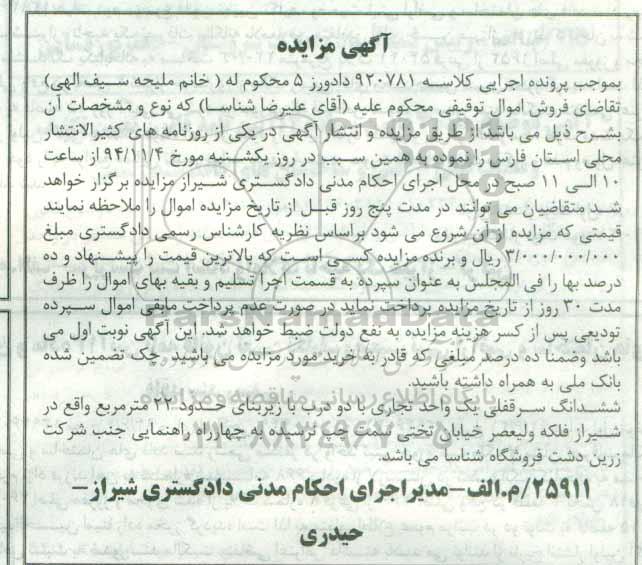 آگهی مزایده
بموجب پرونده اجرایی کلاسه ۹۲۰۷۸۱ دادورز ۵ محکوم له ( خانم ملیحه سیف الهی)
تقاضای فروش اموال توقیفی محکوم علیه (آقای علیرضا شناسا) که نوع و مشخصات آن
بشرح ذیل می باشد از طریق مزایده و انتشار آگهی در یکی از روزنامه های کثیرالانتشار
محلی استان فارس را نموده به همین سبب در روز یکشنبه مورخ ۹۴/۱۱/۴ از ساعت
۱۰ الی ۱۱ صبح در محل اجرای احکام مدنی دادگستری شیراز مزایده برگزار خواهد
شد متقاضیان می توانند در مدت پنج روز قبل از تاریخ مزایده اموال را ملاحظه نمایند
قیمتی که مزایده از آن شروع می شود براساس نظریه کارشناس رسمی دادگستری مبلغ
۳/۰۰۰/۰۰۰/۰۰۰ ریال و برنده مزایده کسی است که بالاترین قیمت را پیشنهاد و ده
درصد بها را فی المجلس به عنوان سپرده به قسمت اجرا تسلیم و بقیه بهای اموال را ظرف
مدت ۳۰ روز از تاریخ مزایده پرداخت نماید در صورت عدم پرداخت مابقی اموال سپرده
تودیعی پس از کسر هزینه مزایده به نفع دولت ضبط خواهد شد. این آگهی نوبت اول می
باشد وضمنا ده درصد مبلغی که قادر به خرید مورد مزایده می باشید چک تضمین شده
بانک ملی به همراه داشته باشید.
ششدانگ سرقفلی یک واحد تجاری با دو درب با زیربنای حدود ۲۲ مترمربع واقع در
شیراز فلکه ولیعصر خیابان تختی سمت چپ نرسیده به چهارراه راهنمایی جنب شرکت
زرین دشت فروشگاه شناسا می باشد.
۲۵۹۱۱/م.الف-مدیراجرای احکام مدنی دادگستری شیراز-
حیدری